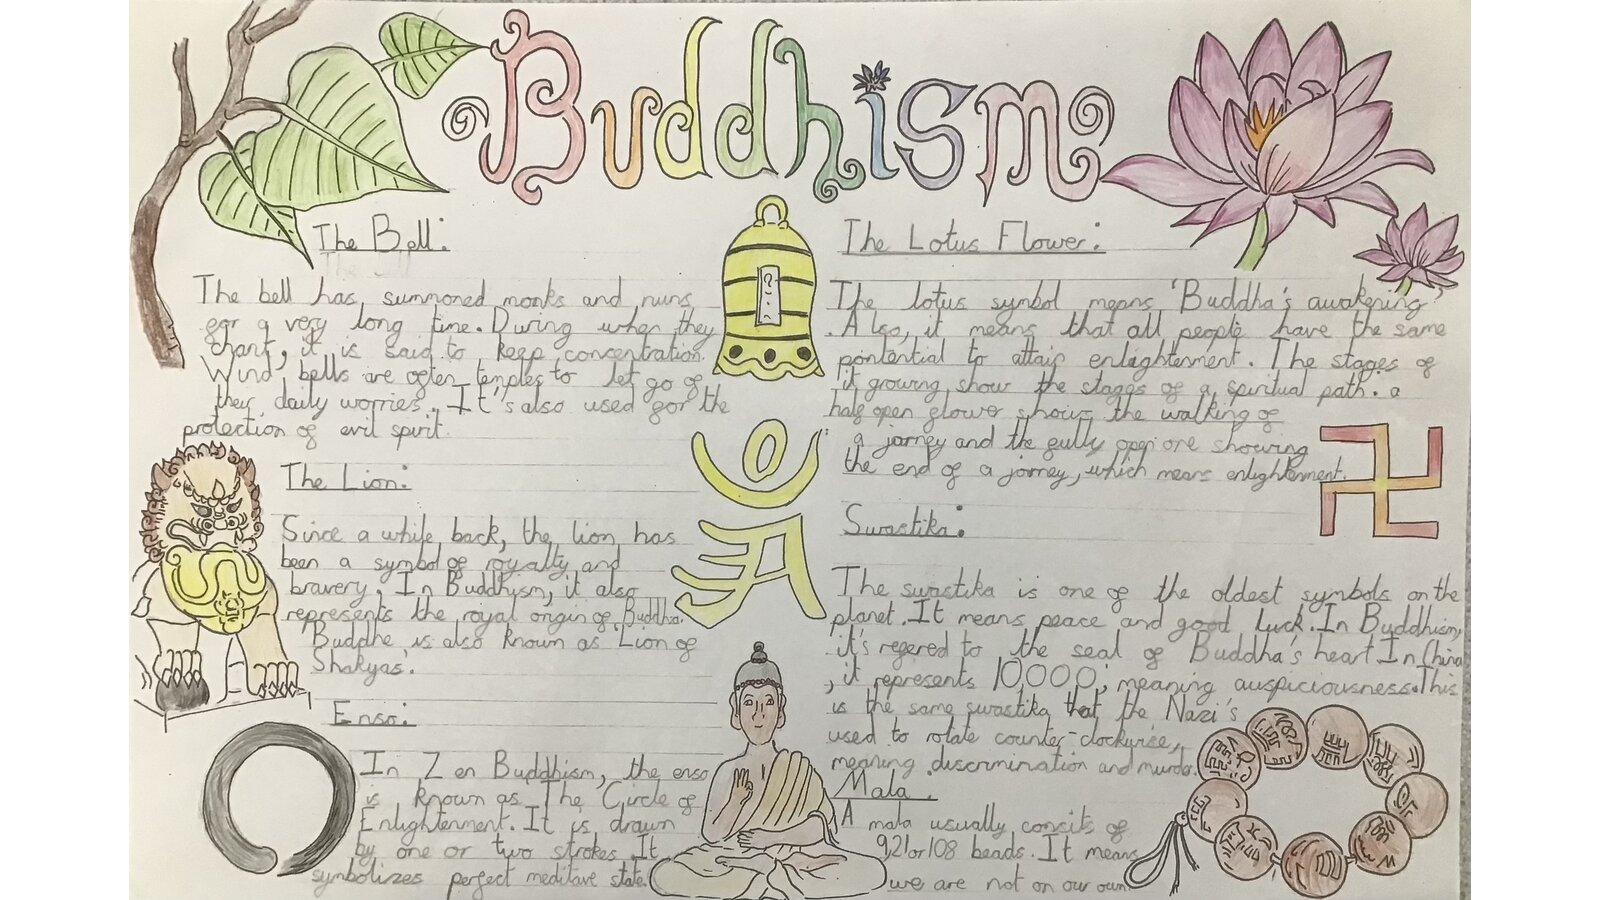 Buddhism
The Bell:
The bell has summoned monks and nuns
for a very long time. During when they
chant, it is said to keep concentration.
Wind bells are often temples to let go of
their daily worries. It's also used for the
protection of evil spirit.
The Lion:
Since a while back, the lion has
been a symbol of royalty and
bravery. In Buddhism, it also
represents the royal origin of Buddha.
Buddhe is also known as 'Lion of
Shakyas'.
Enso:
In Zen Buddhism, the enso
is known as The Circle of
Enlightenment. It is drawn
by one or two strokes. It
symbolizes perfect meditave state.
The Lotus Flower:
The lotus symbol means 'Buddha's awakening'
. Also, it means that all people have the same
pontential to attain enlightenment. The stages of
it growing show the stages of a spiritual path. a
half open flower shows the walking of
a jorney and the fully open one showing
the end of a jorney, which means enlightenment.
Swastika:
The swastika is one of the oldest symbols on the
planet. It means peace and good luck. In Buddhism,
it's refered to the seal of Buddha's heart. In China
, it represents 10,000, meaning auspiciousness. This
is the same swastika that the Nazi's
used to rotate counter-clockwise,
meaning discrimination and murder.
Mala.
A mala usually concits of
9,21 or 108 beads. It means
we are not on our own.